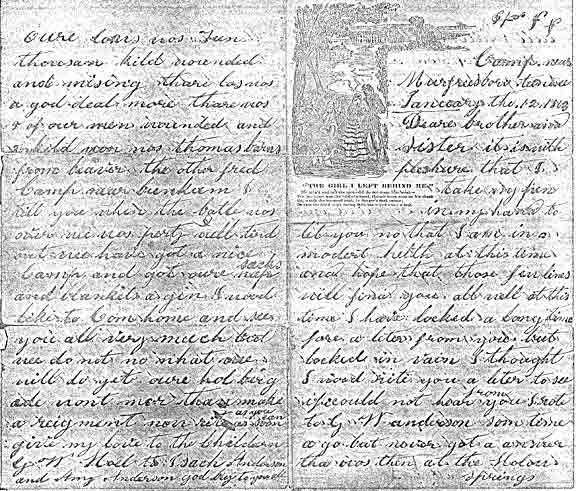 Camp near
Murfreesboro
January the 12 1863
Deare brother and
sister it is with
pleshure that I
take my pen
THE GIRL I LEFT BEHIND ME
in my hand to
let you no that I am in a
modert helth at this time
and hope that those few lines
will find you all well at this
time I have looked a long time
fore a leter from you but
looked in vain I thought
I wod rite you a leter to see
if I could not hear from you I rote
to G W anderson some time
a go but never got a answer
tha was then at the Holow
Springs
Oure loss was
thousan kild wounded
and mising thare los was
a god deal more thare was
8 of our men wounded and
kild won was thomas
from beaver the other fred
Camp near
tell you when the batle was
over we was perty well tird
out we have got a nice
Camp and got oure nap sacks
and blankets agin I wood
like to Com home and see
you all very much but
we do not no what we
will do yet oure hol brig
ade wont mor than make
a reigment now rite as soon as you can
give my love to the Children
G W Noel to Isach Anderson
and Amy Anderson god by to you all